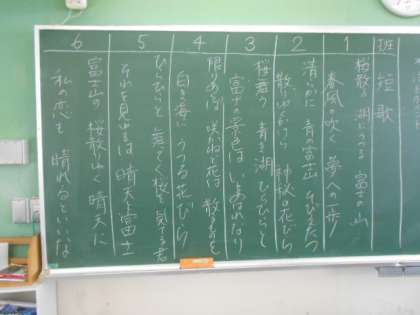 班 短歌
1 桜散る 湖にうつる 富士の山
春風の吹く 夢への一歩
2 清らかに 青の富士山 そびえたつ
散りゆく 神秘の花びら
3 桜舞う 青き湖 ひらひらと
富士の景色は いとあはれなり
4 限りあれば 咲かねど花は 散るものを
白き海に うつる花びら
5 ひらひらと 舞てく桜を 見てる君
それを見 晴天と富士
6 富士山の 桜散りゆく 晴天に
私の恋も 晴れるといいな